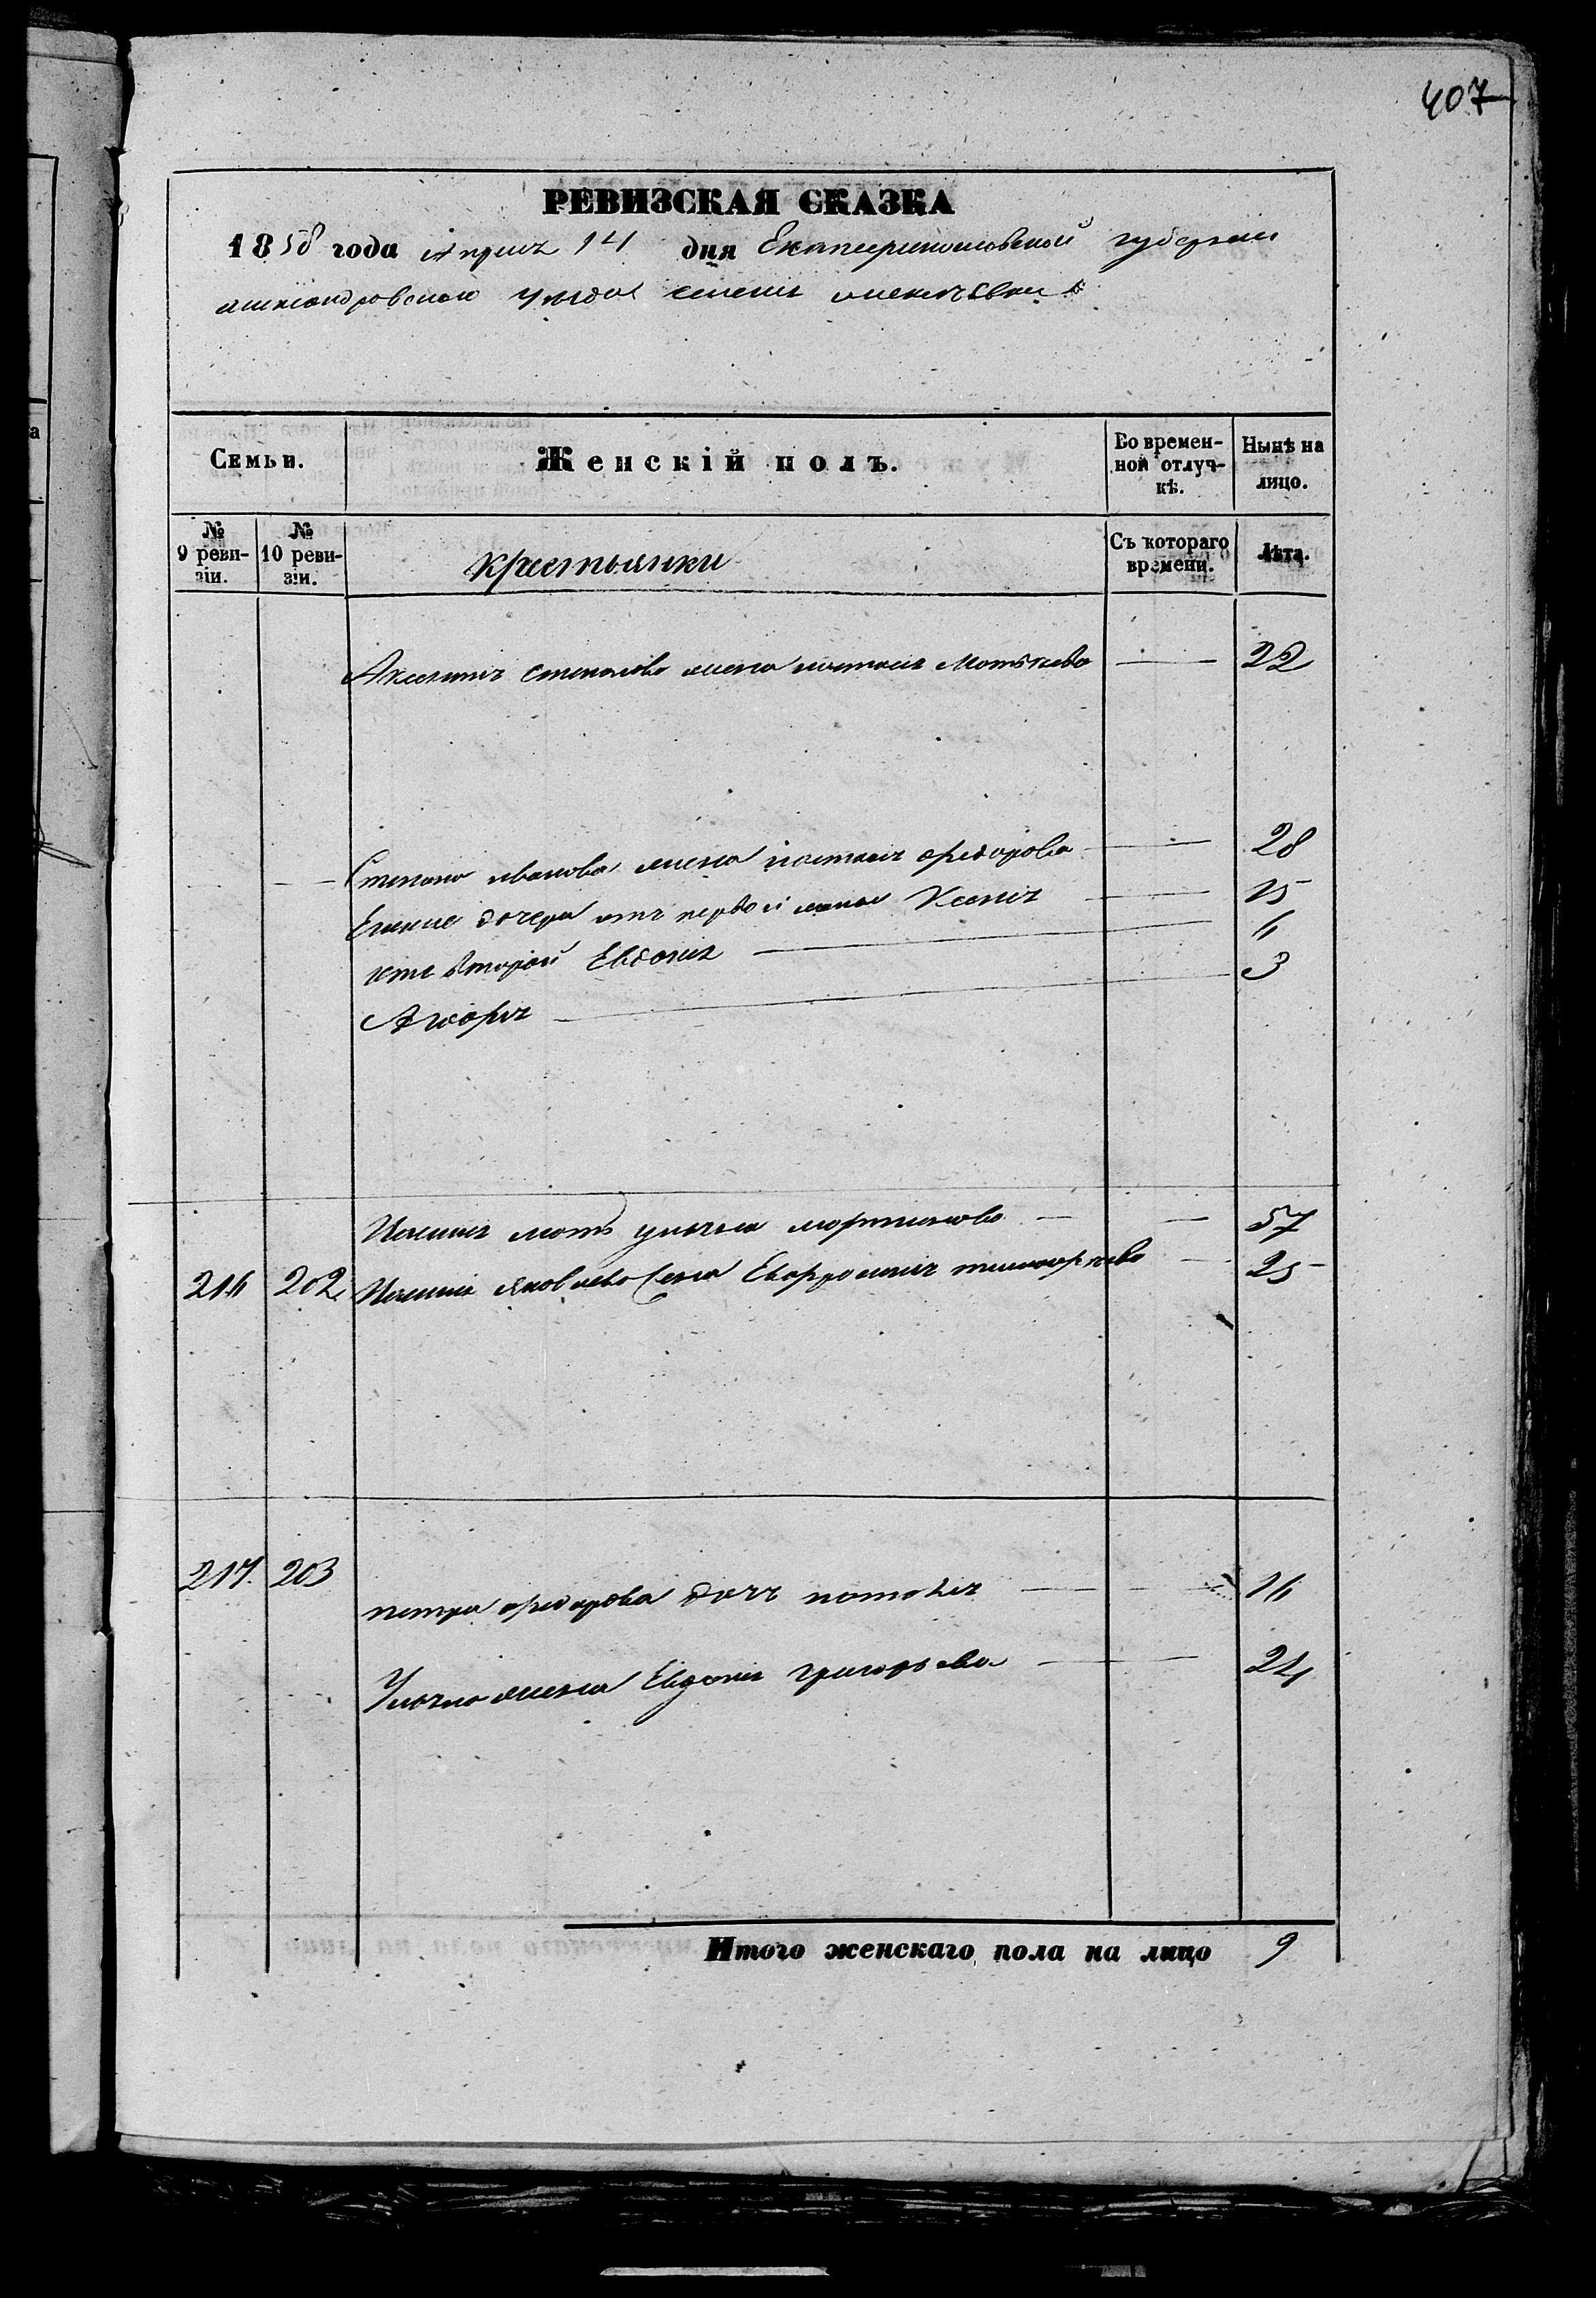 407
РЕВИЗСКАЯ СКАЗКА
1858 года Априля 14 дня Екатеринославской губернии
александровского уезда селения
Семьи.
Женскій полъ.
Во времен-
ной отлуч-
кѣ.
Нынѣ на
лицо.
№
9 реви-
зіи.
№
10 реви-
зіи.
крестьянки
Съ котораго
времени.
Лѣта.
степанова жена наталия Матвѣева 22
Степана иванова жена наталия федорова 28
Егоже дочери отъ первой жены Ксения 15
отъ второй Евдокия 6
3
мать улияна мартинова 57
216 202 яковлева жена Евфросиния 25
217. 203
петра федорова дочь наталия 16
жена Евдокия григорьева 24
Итого женскаго пола на лицо 9